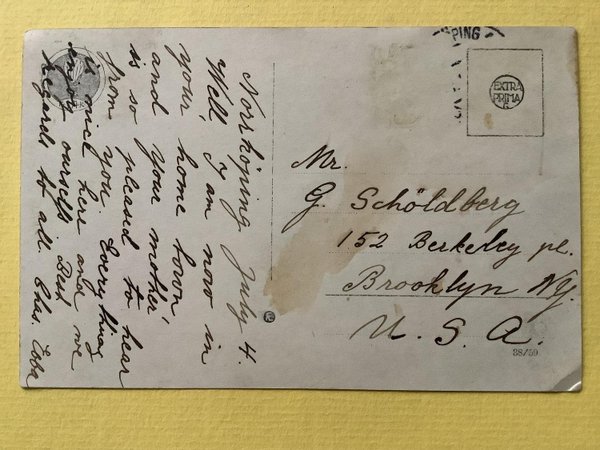 Norrköping July 4.
Well, I am now in
your home town
and your mother
is so pleased to hear
from you. Everything
is nice here and we
enjoy ourselfs Best
Regards to all Chas.
PING
EXTRA
PRIMA
G
Mr.
G. Schöldberg
152 Berkeley pl.
Brooklyn NY.
U. S. A.
38/59